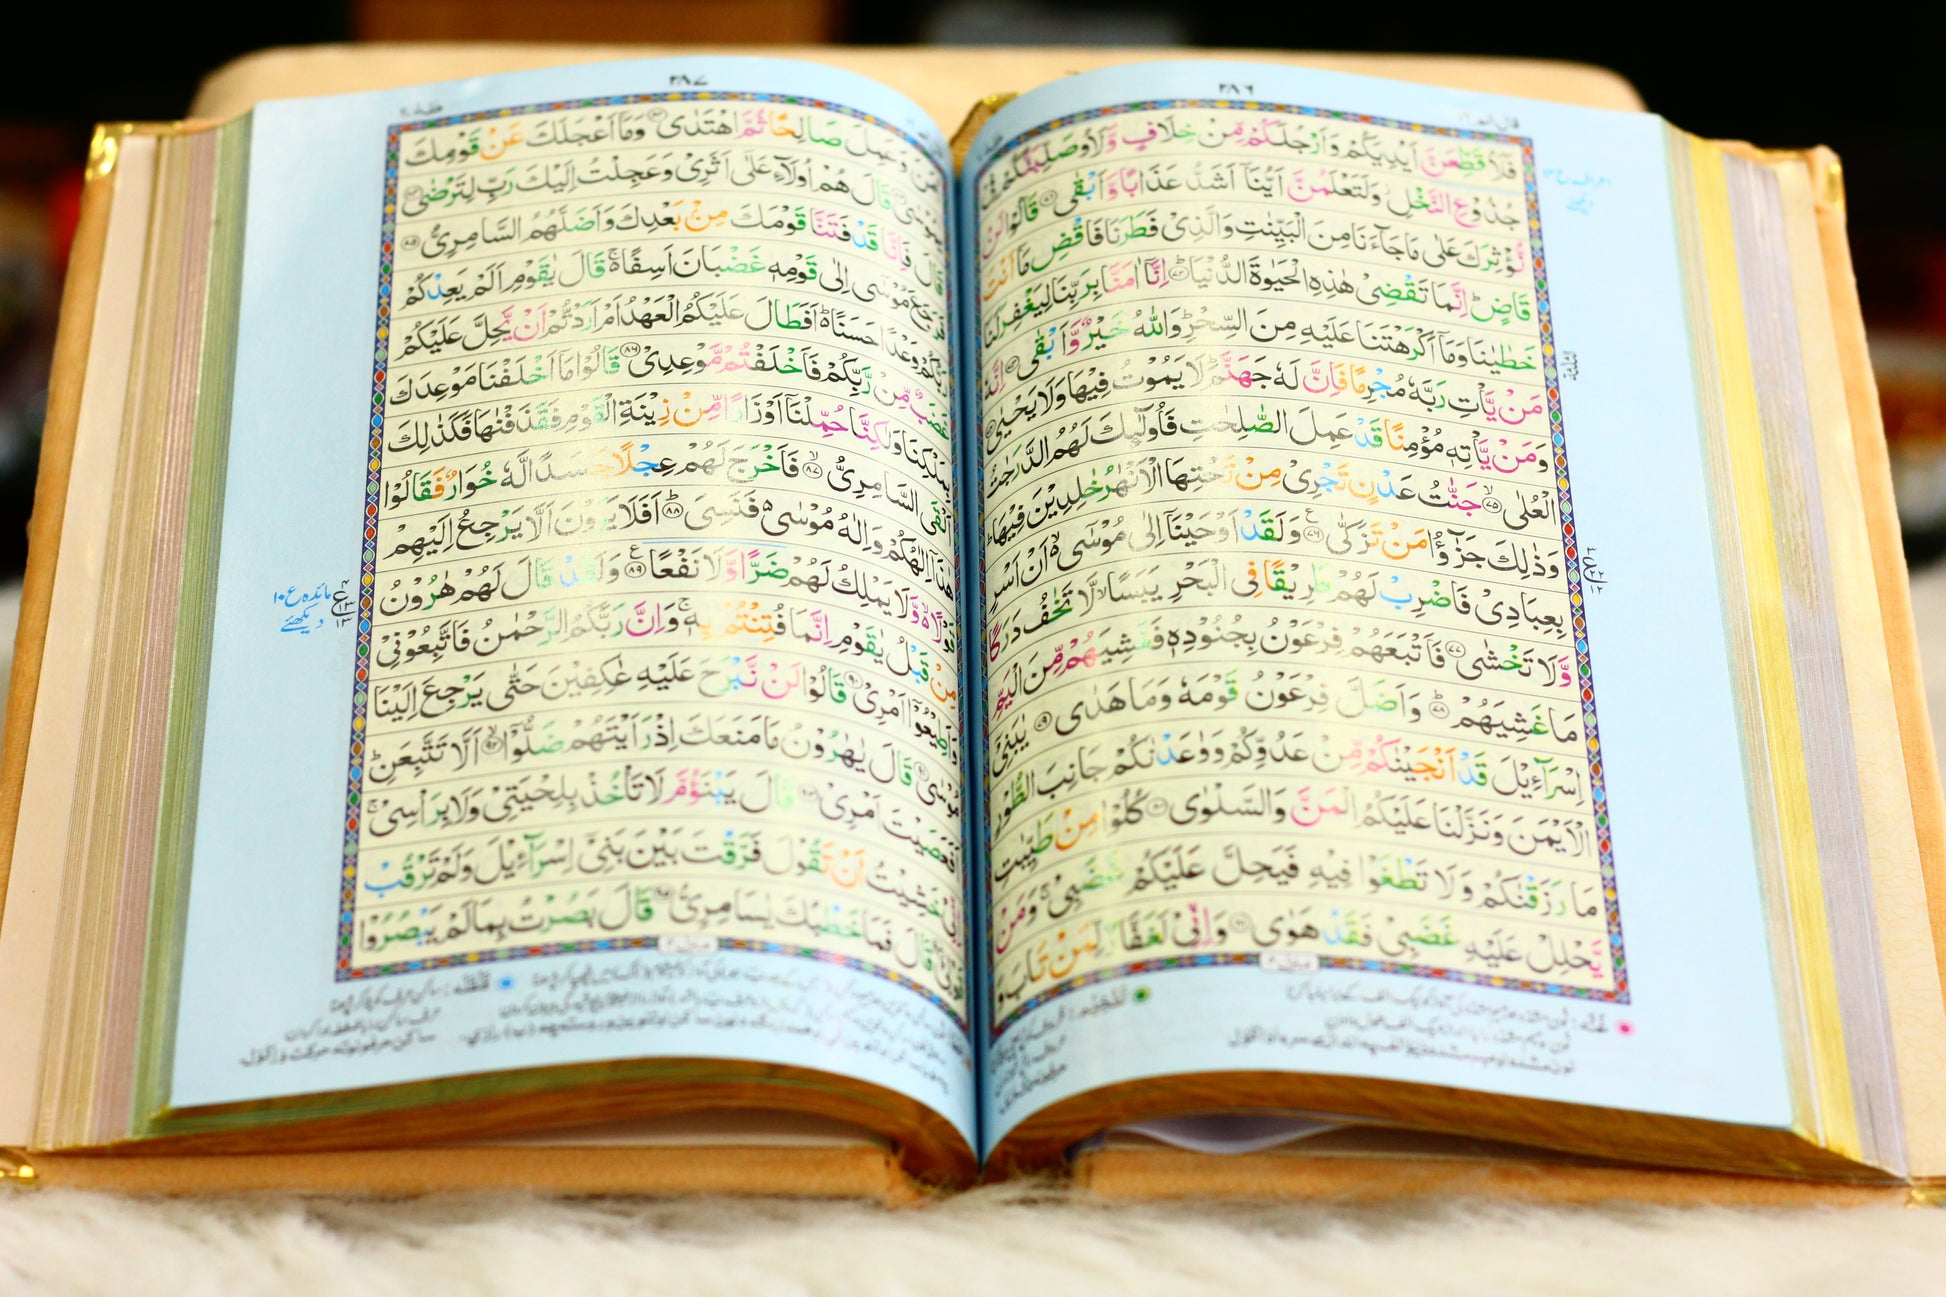 ٢٨٦
قال الم ١٦
فَلَاُ قَطِّعَنَّ اَيْدِيَكُمْ وَاَرْجُلَكُمْ مِّنْ خِلَافٍ وَّلَاُوصَلِّبَنَّكُمْ فِيْ
جُذُوْعِ النَّخْلِ وَلَتَعْلَمُنَّ اَيُّنَآ اَشَدُّ عَذَابًا وَّاَبْقٰى ﴿٧١﴾ قَالُوْا لَنْ
نُّؤْثِرَكَ عَلٰى مَا جَآءَنَا مِنَ الْبَيِّنٰتِ وَالَّذِىْ فَطَرَنَا فَاقْضِ مَآ اَنْتَ
قَاضٍ ؕ اِنَّمَا تَقْضِىْ هٰذِهِ الْحَيٰوةَ الدُّنْيَا ﴿٧٢﴾ اِنَّآ اٰمَنَّا بِرَبِّنَا لِيَغْفِرَ لَنَا
خَطٰيٰنَا وَمَآ اَكْرَهْتَنَا عَلَيْهِ مِنَ السِّحْرِ ؕ وَاللّٰهُ خَيْرٌ وَّاَبْقٰى ﴿٧٣﴾ اِنَّهٗ
مَنْ يَّاْتِ رَبَّهٗ مُجْرِمًا فَاِنَّ لَهٗ جَهَنَّمَ ؕ لَا يَمُوْتُ فِيْهَا وَلَا يَحْيٰى ﴿٧٤﴾
وَمَنْ يَّاْتِهٖ مُؤْمِنًا قَدْ عَمِلَ الصّٰلِحٰتِ فَاُولٰٓئِكَ لَهُمُ الدَّرَجٰتُ
الْعُلٰى ﴿٧٥﴾ جَنّٰتُ عَدْنٍ تَجْرِىْ مِنْ تَحْتِهَا الْاَنْهٰرُ خٰلِدِيْنَ فِيْهَا ؕ
وَذٰلِكَ جَزٰٓؤُا مَنْ تَزَكّٰى ﴿٧٦﴾ وَلَقَدْ اَوْحَيْنَآ اِلٰى مُوْسٰٓى ۙ اَنْ اَسْرِ
بِعِبَادِىْ فَاضْرِبْ لَهُمْ طَرِيْقًا فِى الْبَحْرِ يَبَسًا ۙ لَّا تَخٰفُ دَرَكًا
وَّلَا تَخْشٰى ﴿٧٧﴾ فَاَتْبَعَهُمْ فِرْعَوْنُ بِجُنُوْدِهٖ فَغَشِيَهُمْ مِّنَ الْيَمِّ
مَا غَشِيَهُمْ ﴿٧٨﴾ وَاَضَلَّ فِرْعَوْنُ قَوْمَهٗ وَمَا هَدٰى ﴿٧٩﴾ يٰبَنِىْٓ
اِسْرَآءِيْلَ قَدْ اَنْجَيْنٰكُمْ مِّنْ عَدُوِّكُمْ وَوٰعَدْنٰكُمْ جَانِبَ الطُّوْرِ
الْاَيْمَنَ وَنَزَّلْنَا عَلَيْكُمُ الْمَنَّ وَالسَّلْوٰى ﴿٨٠﴾ كُلُوْا مِنْ طَيِّبٰتِ
مَا رَزَقْنٰكُمْ وَلَا تَطْغَوْا فِيْهِ فَيَحِلَّ عَلَيْكُمْ غَضَبِىْ ۚ وَمَنْ
يَّحْلِلْ عَلَيْهِ غَضَبِىْ فَقَدْ هَوٰى ﴿٨١﴾ وَاِنِّىْ لَغَفَّارٌ لِّمَنْ تَابَ وَ
منزل ٤
٢٨٧
طٰهٰ ٢٠
اٰمَنَ وَعَمِلَ صَالِحًا ثُمَّ اهْتَدٰى ﴿٨٢﴾ وَمَآ اَعْجَلَكَ عَنْ قَوْمِكَ
يٰمُوْسٰى ﴿٨٣﴾ قَالَ هُمْ اُولَآءِ عَلٰٓى اَثَرِىْ وَعَجِلْتُ اِلَيْكَ رَبِّ لِتَرْضٰى ﴿٨٤﴾
قَالَ فَاِنَّا قَدْ فَتَنَّا قَوْمَكَ مِنْۢ بَعْدِكَ وَاَضَلَّهُمُ السَّامِرِىُّ ﴿٨٥﴾
فَرَجَعَ مُوْسٰٓى اِلٰى قَوْمِهٖ غَضْبَانَ اَسِفًا ۚ قَالَ يٰقَوْمِ اَلَمْ يَعِدْكُمْ
رَبُّكُمْ وَعْدًا حَسَنًا ؕ اَفَطَالَ عَلَيْكُمُ الْعَهْدُ اَمْ اَرَدْتُّمْ اَنْ يَّحِلَّ عَلَيْكُمْ
غَضَبٌ مِّنْ رَّبِّكُمْ فَاَخْلَفْتُمْ مَّوْعِدِىْ ﴿٨٦﴾ قَالُوْا مَآ اَخْلَفْنَا مَوْعِدَكَ
بِمَلْكِنَا وَلٰكِنَّا حُمِّلْنَآ اَوْزَارًا مِّنْ زِيْنَةِ الْقَوْمِ فَقَذَفْنٰهَا فَكَذٰلِكَ
اَلْقَى السَّامِرِىُّ ﴿٨٧﴾ فَاَخْرَجَ لَهُمْ عِجْلًا جَسَدًا لَّهٗ خُوَارٌ فَقَالُوْا
هٰذَآ اِلٰهُكُمْ وَاِلٰهُ مُوْسٰى ۬ فَنَسِىَ ﴿٨٨﴾ اَفَلَا يَرَوْنَ اَلَّا يَرْجِعُ اِلَيْهِمْ
قَوْلًا ۬ وَّلَا يَمْلِكُ لَهُمْ ضَرًّا وَّلَا نَفْعًا ﴿٨٩﴾ وَلَقَدْ قَالَ لَهُمْ هٰرُوْنُ
مِنْ قَبْلُ يٰقَوْمِ اِنَّمَا فُتِنْتُمْ بِهٖ ۚ وَاِنَّ رَبَّكُمُ الرَّحْمٰنُ فَاتَّبِعُوْنِىْ
وَاَطِيْعُوْٓا اَمْرِىْ ﴿٩٠﴾ قَالُوْا لَنْ نَّبْرَحَ عَلَيْهِ عٰكِفِيْنَ حَتّٰى يَرْجِعَ اِلَيْنَا
مُوْسٰى ﴿٩١﴾ قَالَ يٰهٰرُوْنُ مَا مَنَعَكَ اِذْ رَاَيْتَهُمْ ضَلُّوْٓا ﴿٩٢﴾ اَلَّا تَتَّبِعَنِ ؕ
اَفَعَصَيْتَ اَمْرِىْ ﴿٩٣﴾ قَالَ يَبْنَؤُمَّ لَا تَاْخُذْ بِلِحْيَتِىْ وَلَا بِرَاْسِىْ ۚ
اِنِّىْ خَشِيْتُ اَنْ تَقُوْلَ فَرَّقْتَ بَيْنَ بَنِىْٓ اِسْرَآءِيْلَ وَلَمْ تَرْقُبْ
قَوْلِىْ ﴿٩٤﴾ قَالَ فَمَا خَطْبُكَ يٰسَامِرِىُّ ﴿٩٥﴾ قَالَ بَصُرْتُ بِمَا لَمْ يَبْصُرُوْا
منزل ٤
مائدہ ع ١٠
دیکھئے